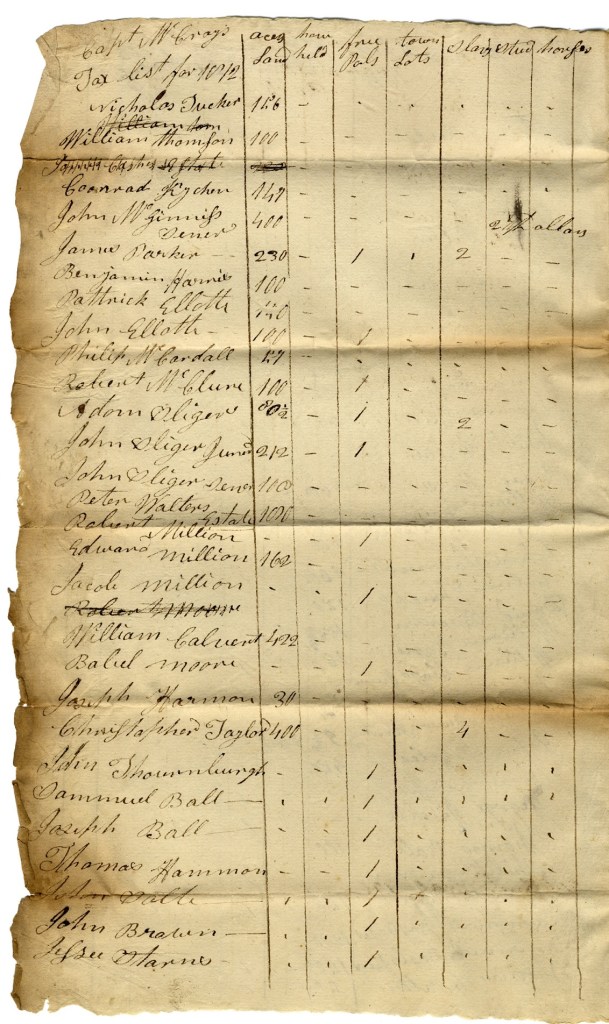 Capt McCrays acres how free town slaves stud horses
Tax list for 1812 Land held Pols Lots
Nicholas Tucker 126 - - - - - -
William Thomson 100 - - - - - -
Coonrad Kycher 147 - - - - - -
John McGinniss Sener 400 - - - - 2 Dollars
James Parker 230 - 1 - 2 - -
Benjamin Harris 100 - - - - - -
Pattrick Elloth 140 - - - - - -
John Elloth 100 - 1 - - - -
Philip McCardall 127 - - - - - -
Robert McClure 100 - 1 - - - -
Adam Sliger 80½ - 1 - 2 - -
John Sliger Juner 212 - 1 - - - -
John Sliger Sener 100 - - - - - -
Peter Walters Estate - - - - - -
Robert Million - - 1 - - - -
Edward Million 162 - - - - - -
Jacob Million - - 1 - - - -
Robert Moore
William Calvert 422 - - - - - -
Babel Moore - - 1 - - - -
Joseph Harmon 30 - - - - - -
Christapher Taylor 400 - - - 4 - -
John Thournburgh - - 1 - - - -
Sammuel Ball - - 1 - - - -
Joseph Ball - - 1 - - - -
Thomas Hammon - - 1 - - - -
John - - 1 - - - -
John Brawn - - 1 - - - -
Jessee Starns - - 1 - - - -